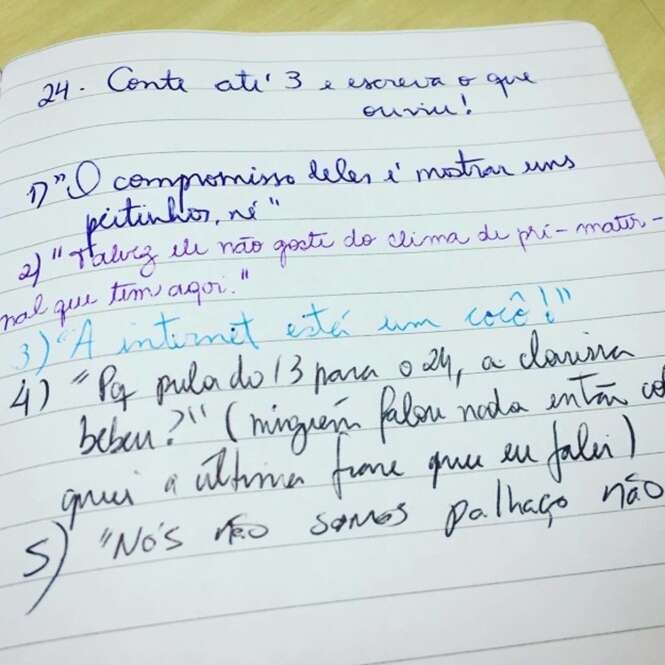 24. Conte até 3 e escreva o que
ouviu!
1) "O compromisso deles é mostrar uns
peitinhos, né"
2) "Talvez ele não goste do clima de pré-mater-
nal que tem aqui."
3) "A internet está um cocô!"
4) "Pq pula do 13 para o 24, a clarissa
bebeu?" (ninguém falou nada então colo
quei a última frase que eu falei)
5) "Nós não somos palhaço não